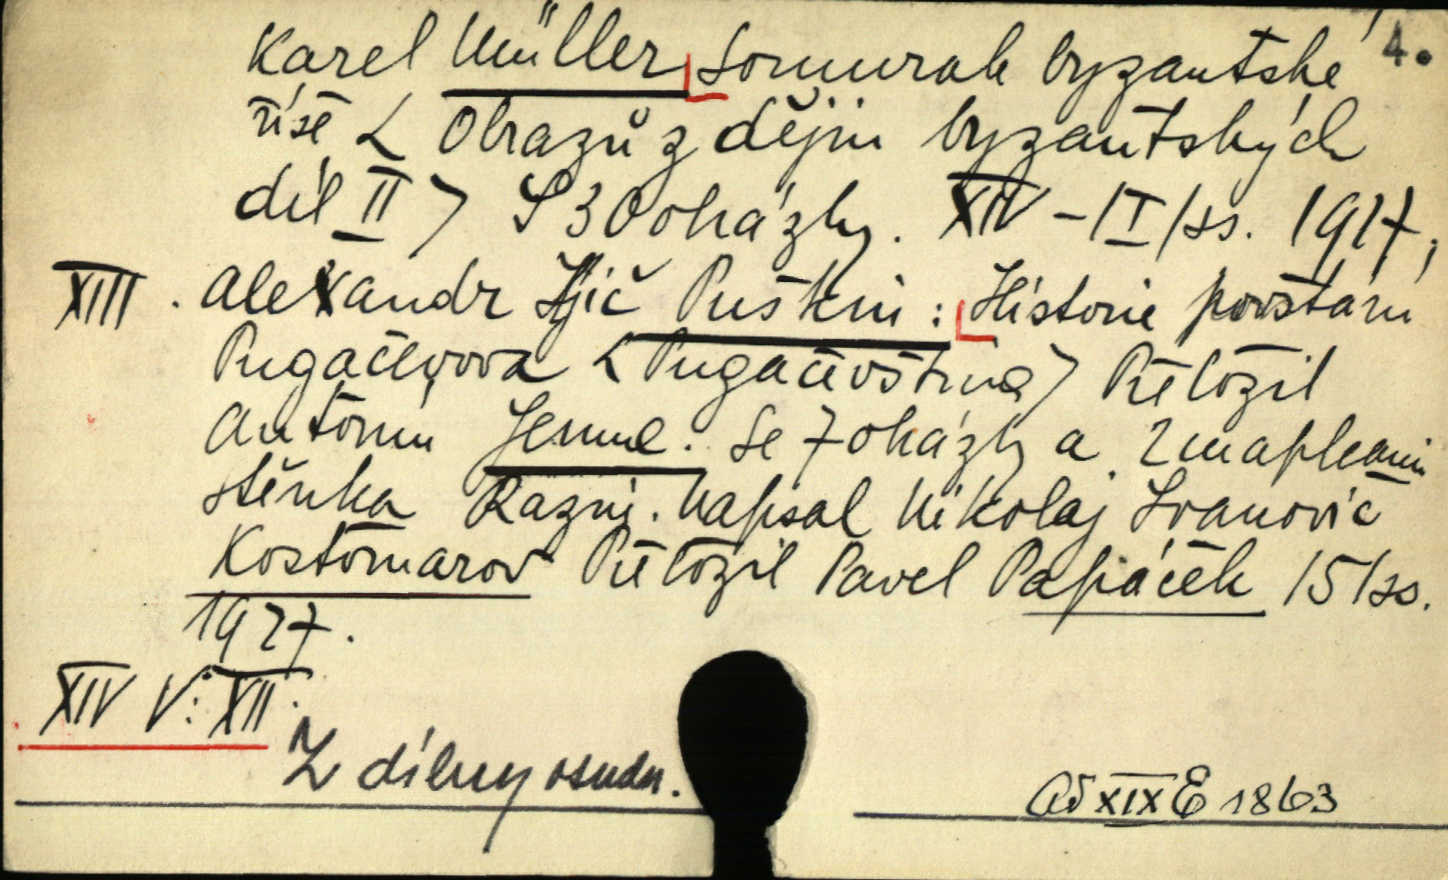 4.
Karel Müller Soumrak byzantské
říše < Obrazů z dějin byzantských
díl II > S 30 obrázky. XIV – 151 ss. 1927,
XIII. Alexandr Iljič Puškin: Historie povstání
Pugačevova < Pugačevština > Přeložil
Antonín Jemne. Se 7 obrázky a 2 mapkami
Stěnka Razin. Napsal Nikolaj Ivanovič
Kostomarov Přeložil Pavel Papáček 151 ss.
1927.
XIV V: XII.
Z dílny osudu.
Ad XIX E 1863